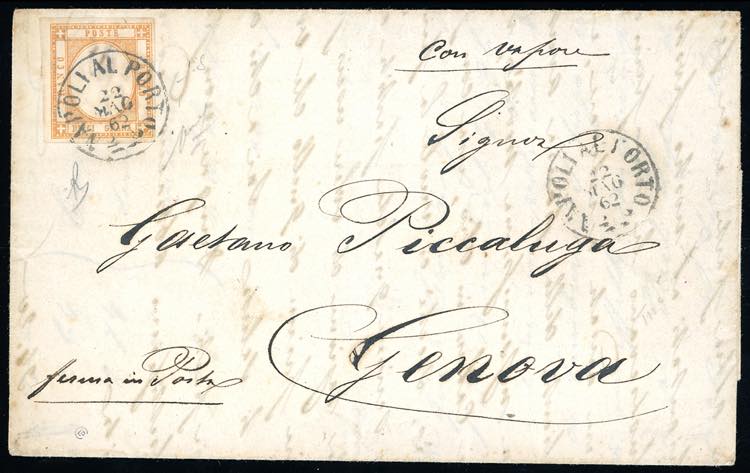 POSTE
FRANCO
DIECI GRANA
NAPOLI AL PORTO
22
MAG
62
Con vapore
Signor
NAPOLI AL PORTO
22
MAG
62
Gaetano Piccaluga
Genova
ferma in Posta